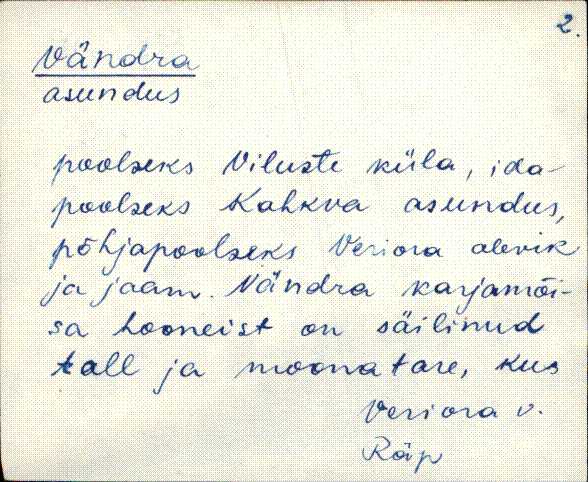 2.
Vändra
asundus
poolseks Viluste küla, ida-
poolseks Kahkva asundus,
põhjapoolseks Veriora alevik
ja jaam. Vändra karjamõi-
sa hooneist on säilinud
tall ja moonatare, kus
Veriora v.
Räp